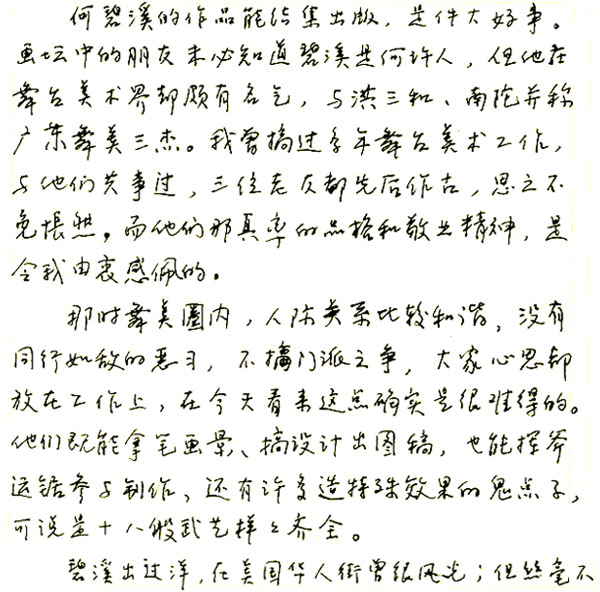 何碧溪的作品能结集出版，是件大好事。
画坛中的朋友未必知道碧溪是何许人，但他在
舞台美术界却颇有名气，与洪三和、南陀并称
广东舞美三杰。我曾搞过多年舞台美术工作，
与他们共事过，三位老友都先后作古，思之不
免怅然。而他们那真率的品格和敬业精神，是
令我由衷感佩的。
那时舞美圈内，人际关系比较和谐，没有
同行如敌的恶习，不搞门派之争，大家心思都
放在工作上，在今天看来这点确实是很难得的。
他们既能拿笔画景、搞设计出图稿，也能挥斧
运锯参与制作，还有许多造特殊效果的鬼点子，
可说是十八般武艺样々齐全。
碧溪出过洋，在美国华人街曾很风光；但丝毫不